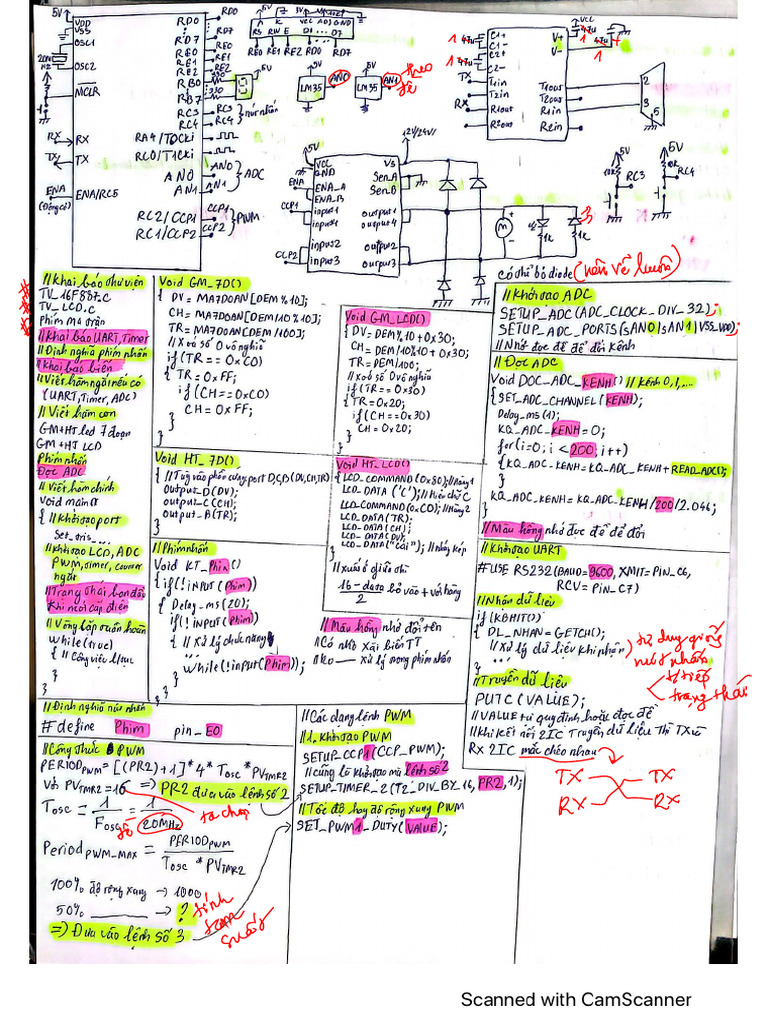 5V
VDD
VSS
OSC1
OSC2
20M
HZ
MCLR
RX
TX
ENA
(Động cơ)
RX
TX
ENA/RC5
RD0
RD7
RE0
RE1
RE2
RB0
RB7
RC3
RC4
RA4/T0CKi
RC0/T1CKi
AN0
AN1
RC2/CCP1
RC1/CCP2
RD0
RD7
RE0
RE1
330
5V
RC3
RC4
nút nhấn
AN0
AN1
ADC
CCP1
CCP2
PWM
5V
A K VCC
RS RW E D0... D7
RE0 RE1 RE2 RD0 RD7
5V
LM35
AN0
5V
LM35
AN1
theo đề
C1+
C1-
C2+
C2-
T1in
T2in
R1out
R2out
V+
V-
T1out
T2out
R1in
R2in
TX
RX
VCC
2
3
5
5V
VCC
GND
ENA_A
ENA_B
input1
input2
input3
ENA
CCP1
CCP2
VS
Sen.A
Sen.B
output1
output4
output2
output3
12V/24V
M
1k
1k
5V
RC3
5V
RC4
có thể bỏ diode (nên vẽ luôn)
//Khai báo thư viện
TV_16F887.c
TV_LCD.c
Phím Ma trận
//Khai báo UART, Timer
//Định nghĩa phím nhấn
//Khai báo biến
//Viết hàm ngắt nếu có
(UART, Timer, ADC)
//Viết hàm con
GM+HT led 7 đoạn
GM+HT LCD
Phím nhấn
Đọc ADC
//Viết hàm chính
Void main()
{ //Khởi tạo port
Set_tris_...
//Khởi tạo LCD, ADC
PWM, Timer, Counter
ngắt
//Trạng thái ban đầu
khi mới cấp điện
//Vòng lặp tuần hoàn
While(true)
{ //Công việc
}
}
Void GM_7D()
{ DV = MA7DOAN[DEM%10];
CH = MA7DOAN[DEM/10%10];
TR = MA7DOAN[DEM/100];
//Xóa số 0 vô nghĩa
if(TR == 0xC0)
{ TR = 0xFF;
if(CH == 0xC0)
CH = 0xFF;
}
}
Void HT_7D()
{ //Tùy vào phần cứng port D,C,B (DV,CH,TR)
output_D(DV);
output_C(CH);
output_B(TR);
}
//Phím nhấn
Void KT_Phin()
{ if(!inPUT(Phim))
{ Delay_ms(20);
if(!inPUT(Phim))
{ //Xử lý chức năng
While(!inPUT(Phim));
}
}
}
Void GM_LCD()
{ DV = DEM%10+0x30;
CH = DEM/10%10+0x30;
TR = DEM/100;
//xóa số 0 vô nghĩa
if(TR == 0x30)
{ TR = 0x20;
if(CH == 0x30)
CH = 0x20;
}
}
Void HT_LCD()
{ LCD_COMMAND(0x80); //Hàng 1
LCD_DATA('C'); //Hiện chữ C
LCD_COMMAND(0xC0); //Hàng 2
LCD_DATA(TR);
LCD_DATA(CH);
LCD_DATA(DV);
LCD_DATA("cái"); //nháy kép
}
//xuất ở giữa thì
16-data / 2 bỏ vào + với hàng
//Màu hồng nhớ đổi tên
//Có nhớ xài biến TT
//ko — xử lý trong phím nhấn
//Khởi tạo ADC
SETUP_ADC(ADC_CLOCK_DIV_32);
SETUP_ADC_PORTS(SAN0|SAN1|VSS_VDD);
//Nhớ đọc đề để đổi kênh
//Đọc ADC
Void DOC_ADC_KENH() //Kênh 0,1,...
{ SET_ADC_CHANNEL(KENH);
Delay_ms(1);
KQ_ADC_KENH=0;
for(i=0; i<200; i++)
{ KQ_ADC_KENH=KQ_ADC_KENH+READ_ADC();
}
KQ_ADC_KENH=KQ_ADC_KENH/200/2.046;
}
//Màu hồng nhớ đọc đề để đổi
//Khởi tạo UART
#USE RS232(BAUD=9600, XMIT=PIN_C6,
RCV=PIN_C7)
//Nhận dữ liệu
if(KBHIT())
{ DL_NHAN=GETCH();
//Xử lý dữ liệu khi nhận
...
}
tư duy giống nút nhấn
trực tiếp
trạng thái
//Truyền dữ liệu
PUTC(VALUE);
//VALUE tự quy định hoặc đọc đề
//Khi kết nối 2IC Truyền dữ liệu thì TX và
Rx 2IC mắc chéo nhau
TX TX
RX RX
//Định nghĩa nút nhấn
#define Phim pin_E0
//Công thức PWM
PERIODPWM=[(PR2)+1]*4*Tosc*PVTMR2
Với PVTMR2=16 => PR2 đưa vào lệnh số 2
ta chọn
Tosc = 1/Fosc = 1/20MHz
đề
PeriodPWM_MAX = PERIODPWM / Tosc*PVTMR2
100% độ rộng xung → 1000
50% → ?
tính tam suất
=> Đưa vào lệnh số 3
//Các dạng lệnh PWM
//1. Khởi tạo PWM
SETUP_CCP1(CCP_PWM);
//cũng là khởi tạo mà lệnh số 2
SETUP_TIMER_2(T2_DIV_BY_16, PR2, 1);
//Tốc độ hay độ rộng xung PWM
SET_PWM1_DUTY(VALUE);
Scanned with CamScanner